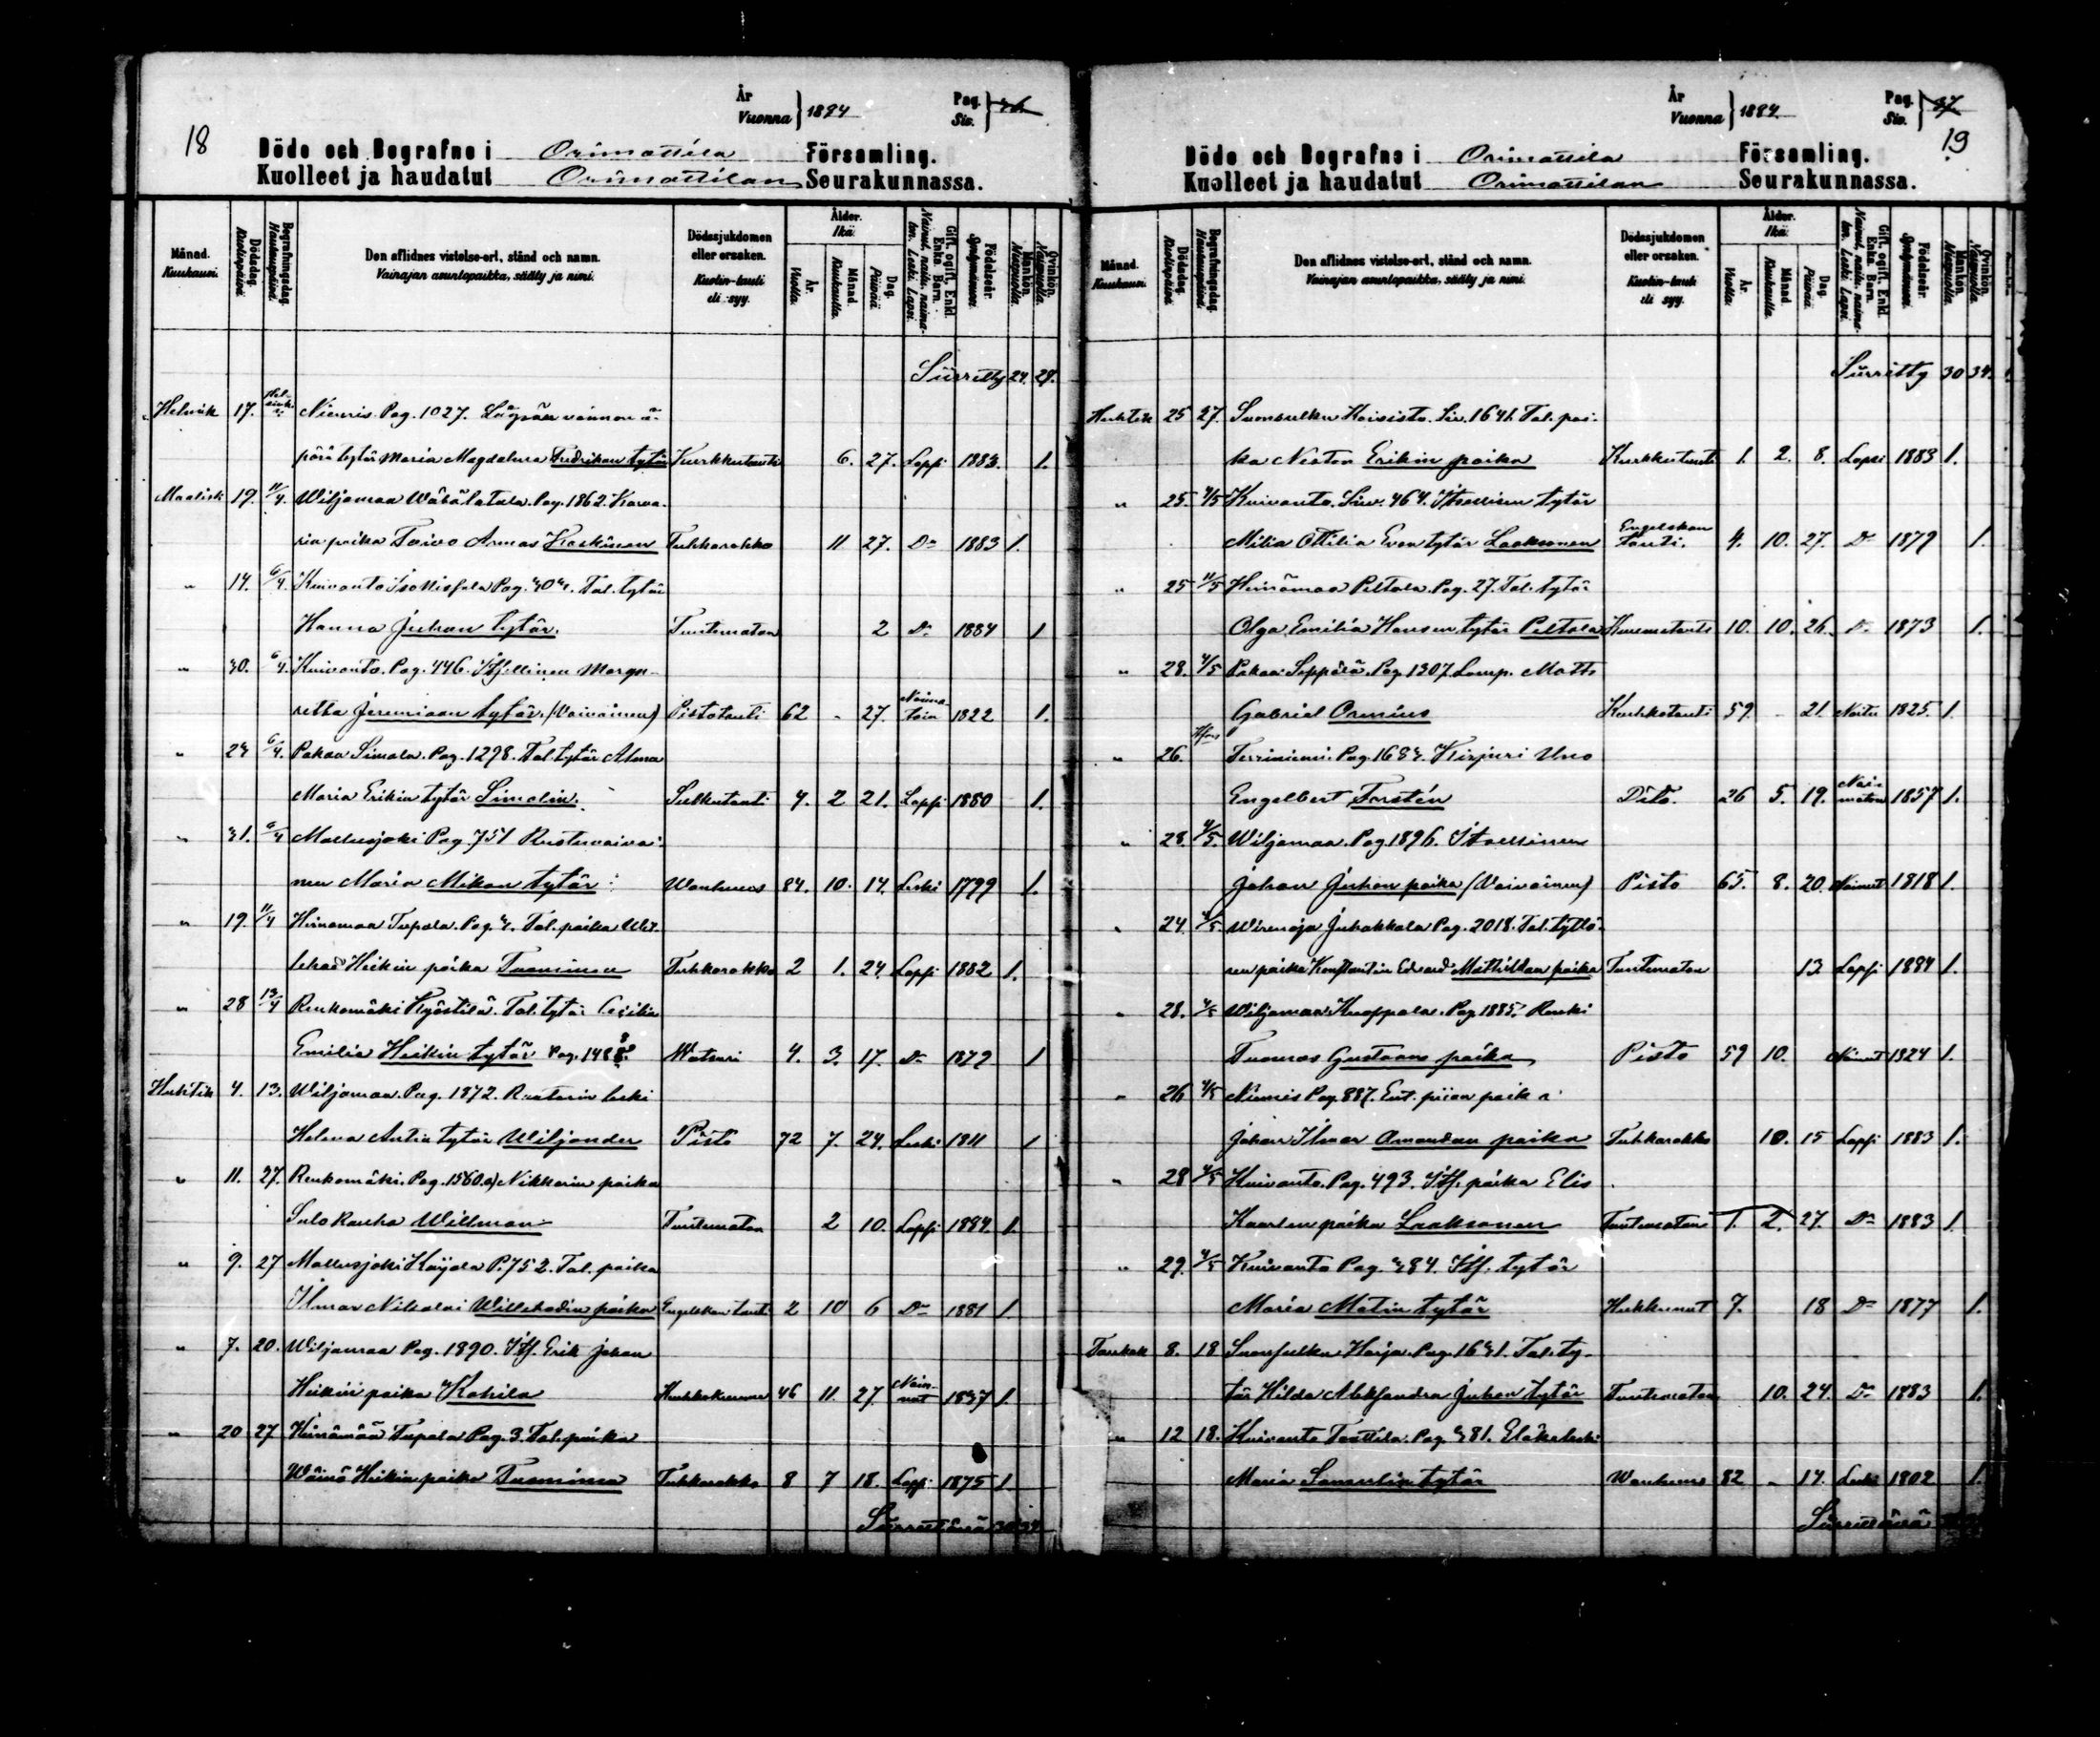 År
Vuonna } 1884
Pag.
Siv.
18
Döde och Begrafne i Orimattila Församling.
Kuolleet ja haudatut Orimattilan Seurakunnassa.
Månad. Kuukausi.
Dödsdag. Kuolinpäivä.
Begrafningsdag. Hautauspäivä.
Den aflidnes vistelse-ort, stånd och namn.
Vainajan asuntopaikka, sääty ja nimi.
Dödssjukdomen eller orsaken.
Kuolin-tauti eli syy.
Ålder. Ikä.
År. Vuotta.
Månad. Kuukautta.
Dag. Päivää.
Gift, ogift, Enkl. Enka, Barn.
Födelseår. Syntymävuosi.
Mankön. Miespuolia.
Qvinkön. Naispuolia.
Siirretty 24. 29.
Helmik 17. Niemis. Pag. 1027.
pörä tytär Maria Magdalena Fredrikan tytär Kurkkutauti 6. 27. Lapsi 1883. 1.
Maalisk 19. 11/4. Wiljamaa Wähälatala. Pag. 1862. Karva-
rin poika Toivo Armas Koskinen Tuhkarokko 11 27. Do 1883 1.
" 14. 6/4. Kuivanto Pag. Tal. tytär
Hanna Juhan tytär. Tuntematon 2 Do 1884 1
" 30. 6/4. Kuivanto. Pag. 446. Itsellinen Marga-
retta Jeremiaan tytär. (Vaivainen) Pistotauti 62 - 27. Naima-toin 1822 1.
" 24 6/4. Pakaa Simola. Pag. 1298. Tal. tytär Alma
Maria Erikin tytär Simolin. 4. 2 21. Lapsi 1880 1.
" 31. 6/4 Mallusjoki Pag. 751 Ruotuvaivai-
nen Maria Mikon tytär Wanhuus 84. 10. 14. Leski 1799 1.
" 19. 11/4 Heinämaa Tupala. Pag. Tal. poika Wil-
lehad Heikin poika Tuominen Tuhkarokko 2 1. 24. Lapsi 1882 1.
" 28 13/4 Renkomäki Hyöstilä. Tal. tytär Cecilia
Emilia Heikin tytär Pag. Matsuri 4. 3. 17. Do 1879 1
Huhtik 4. 13. Wiljamaa. Pag. 1872. Räätärin leski
Helena Antin tytär Wiljander Pisto 72 7. 24. Leski 1811 1
" 11. 27. Renkomäki. Pag. 1560. a) Nikkarin poika
Sulo Rauha Willman Tuntematon 2 10. Lapsi 1884. 1.
" 9. 27 Mallusjoki Käyölä P. 752. Tal. poika
Ilmar Nikolai Willehadin poika Engelskan tauti 2 10 6 Do 1881 1.
" 7. 20. Wiljamaa Pag. 1890. Its. Erik Johan
Heikin poika Kahila 46 11. 27. Nai-nut 1837 1.
" 20 27 Heinämää Tupala Pag. 3. Tal. poika
Wäinö Heikin poika Tuominen Tuhkarokko 8 7 18. Lapsi 1875 1.
Siirrettävä 30 34
År
Vuonna } 1884.
Pag.
Siv. 37
19
Döde och Begrafne i Orimattila Församling.
Kuolleet ja haudatut Orimattilan Seurakunnassa.
Månad. Kuukausi.
Dödsdag. Kuolinpäivä.
Begrafningsdag. Hautauspäivä.
Den aflidnes vistelse-ort, stånd och namn.
Vainajan asuntopaikka, sääty ja nimi.
Dödssjukdomen eller orsaken.
Kuolin-tauti eli syy.
Ålder. Ikä.
År. Vuotta.
Månad. Kuukautta.
Dag. Päivää.
Gift, ogift, Enkl. Enka, Barn.
Födelseår. Syntymävuosi.
Mankön. Miespuolia.
Qvinkön. Naispuolia.
Siirretty 30 34.
Huhtik 25 27. Suosulka Siv. 1641. Tal. poi-
ka Nestor Erikin poika Kurkkutauti 1. 2. 8. Lapsi 1883 1.
" 25. 4/5 Kuivanto. Siv. 464. Itsellisen tytär
Milia Ottilia Evan tytär Laaksonen Engelskan tauti. 4. 10. 27. Do 1879 1.
" 25 11/5 Heinämaa Peltola. Pag. 27. Tal. tytär
Olga Emilia tytär Peltola 10. 10. 26. Do 1873 1.
" 28. 4/5 Pakaa Seppälä. Pag. 1307. Lamp. Matts
Gabriel Ornius Keuhkotauti 59. - 21. 1825. 1.
" 26. Terriniemi. Pag. Kirjuri Uno
Engelbert Forstén Dito. 26 5. 19. Nai-maton 1857 1.
" 28. 4/5. Wiljamaa. Pag. 1896. Itsellinen
Johan Juhan poika (Vaivainen) Pisto 65. 8. 20. Nainut 1818 1.
" 24. 4/5. Wirenoja Juhakkala Pag. 2018. Tal. tyttä-
ren poika Konstantin Edvard Mathildan poika Tuntematon 13. Lapsi 1884 1.
" 28. 4/5 Wiljamaa Knappala. Pag. 1885. Renki
Tuomas Gustaans poika Pisto 59 10. Nainut 1824 1.
" 26 4/5 Niemis Pag. 887. Ent. piian poika
Johan Ilmar Amandan poika Tuhkarokko 10. 15 Lapsi 1883 1.
" 28 4/5 Kuivanto. Pag. 493. Its. poika Elis
Kaarlen poika Laaksonen Tuntematon 1. 2. 27. Do 1883 1.
" 29. 4/5 Kuivanto Pag. 384. Its. tytär
Maria Matin tytär Hukkunut 7. 18 Do 1877 1.
Toukok 8. 18 Suosulka Harja. Pag. 1631. Tal. ty-
tär Hilda Aleksandra Juhon tytär Tuntematon 10. 24. Do 1883 1.
" 12 18. Kuivanto Pag. 381. Eläkeleski
Maria Samulin tytär Wanhuus 82 - 14. Leski 1802 1.
Siirrettävä